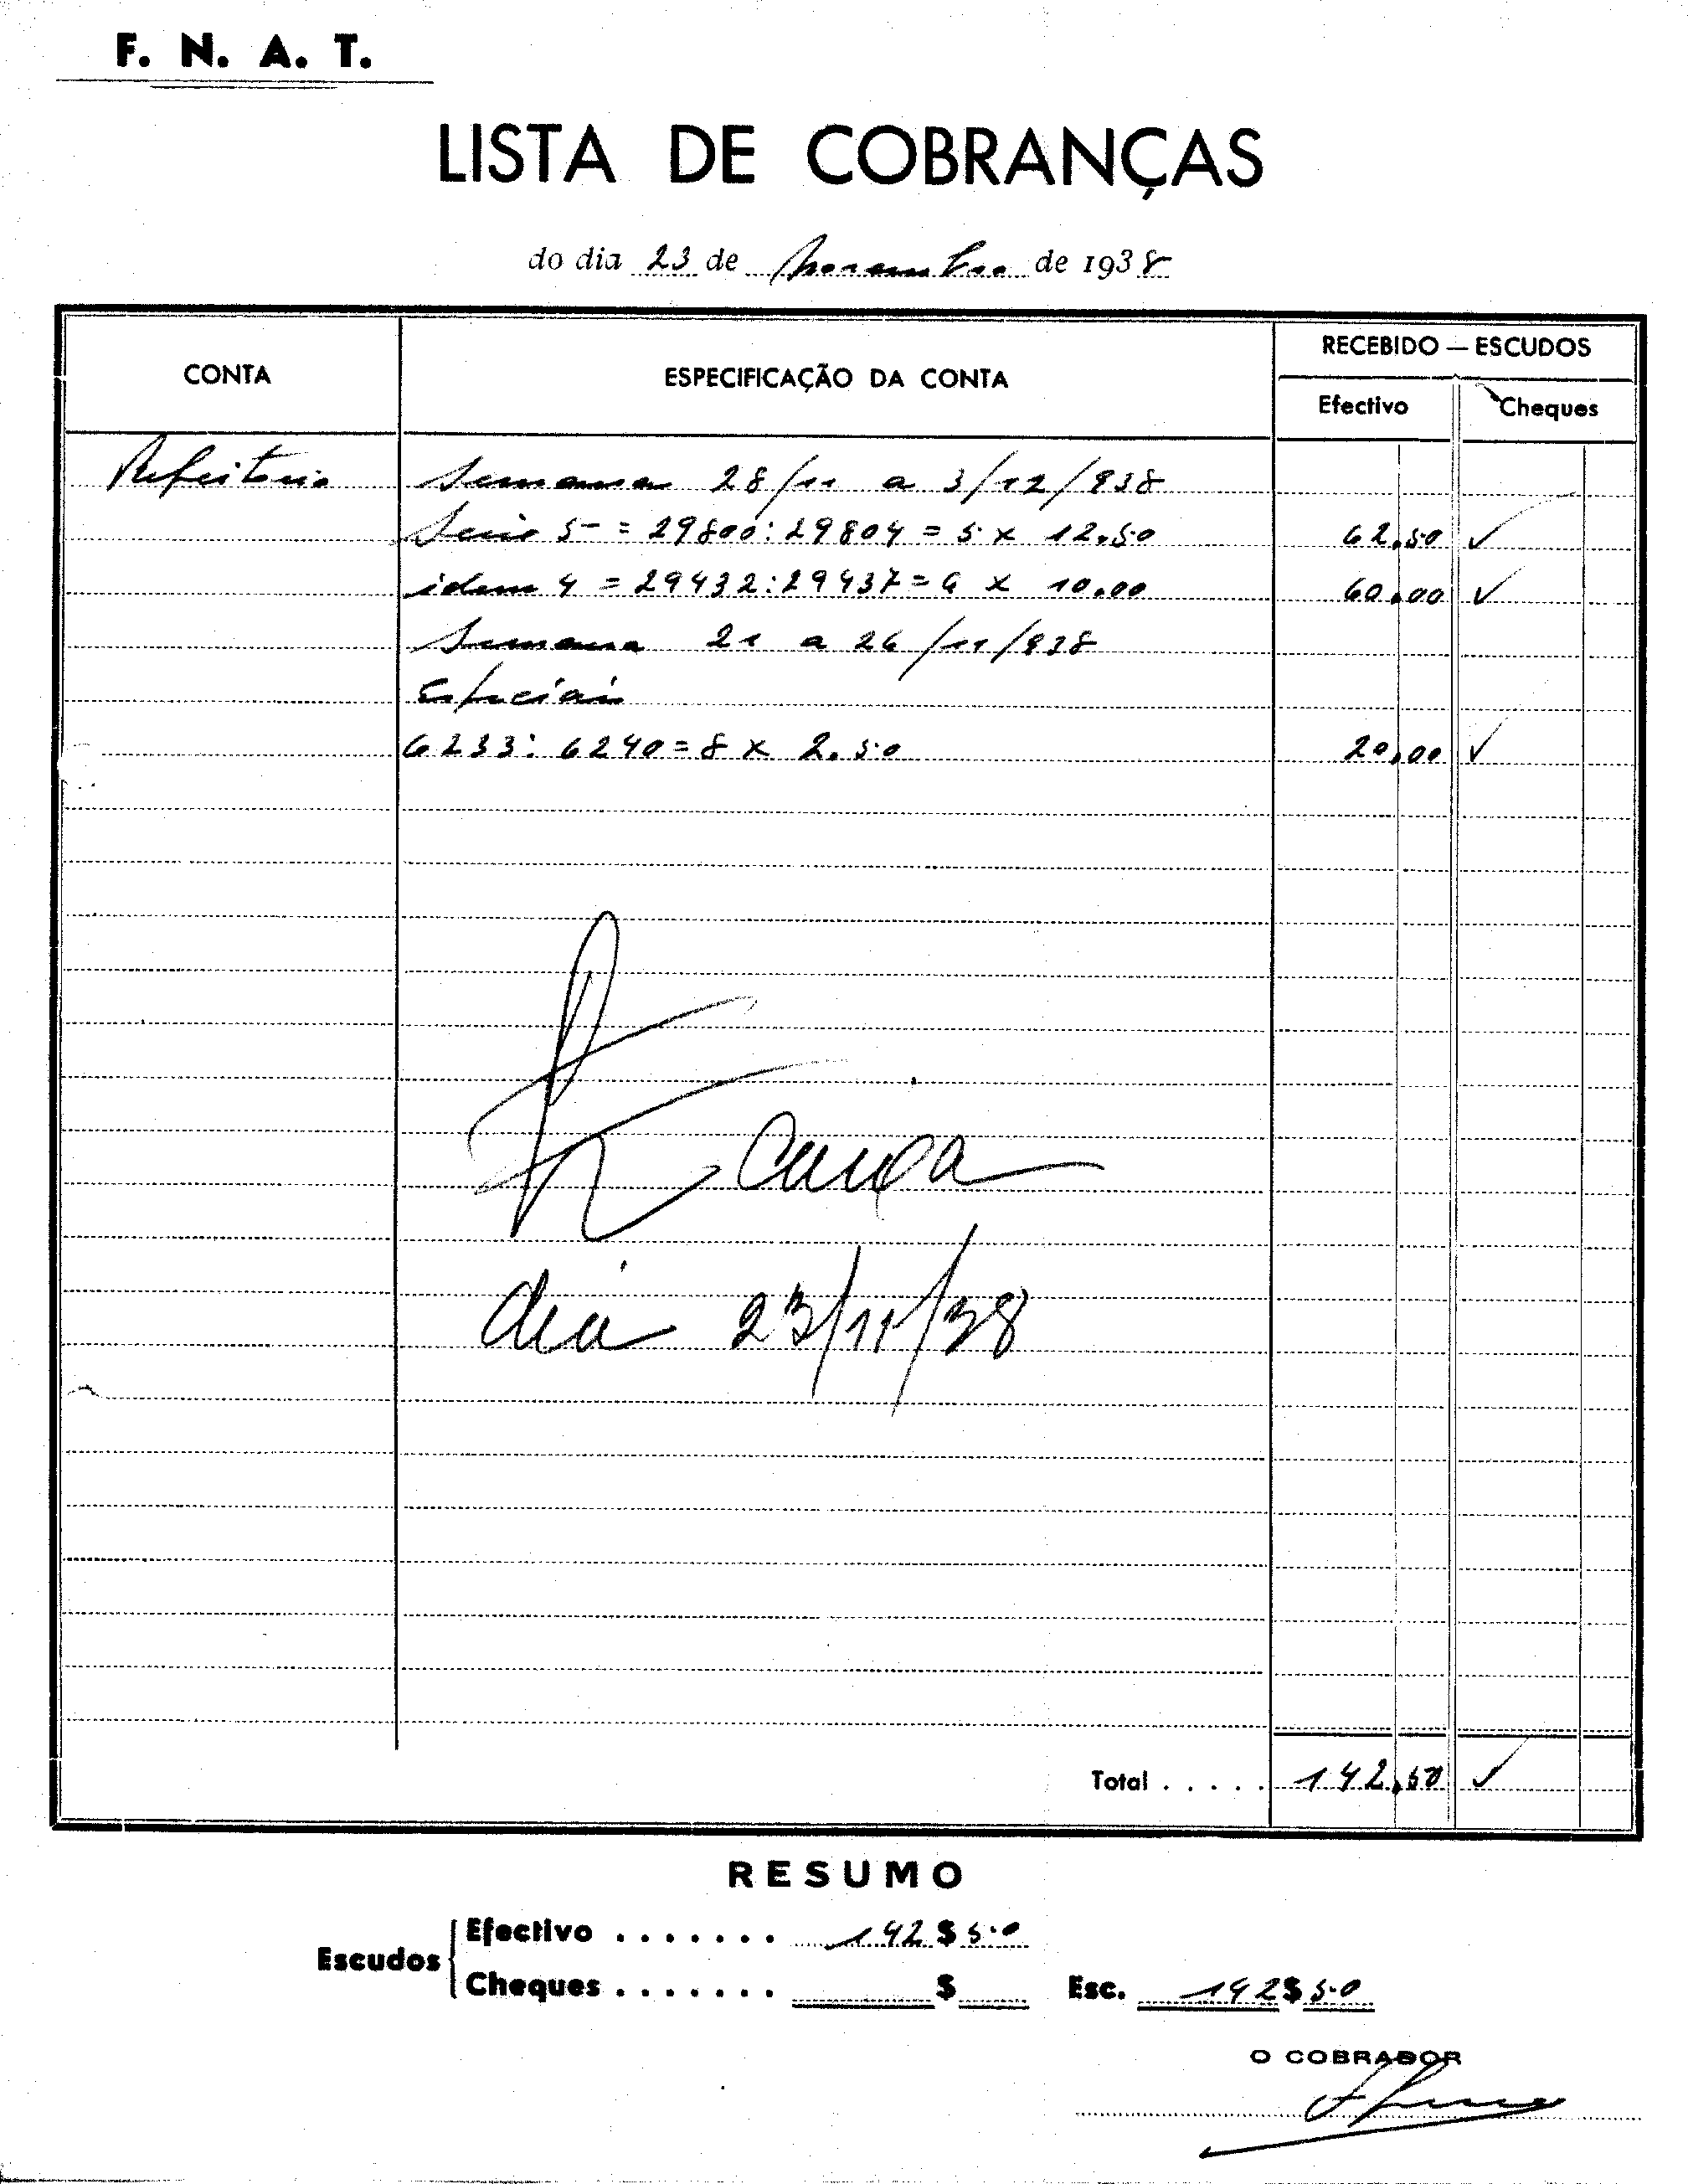 F. N. A. T.
LISTA DE COBRANÇAS
do dia 23 de Novembro de 1938
CONTA
ESPECIFICAÇÃO DA CONTA
RECEBIDO — ESCUDOS
Efectivo
Cheques
Refeitorio Semana 28/11 a 3/12/938
Serie 5- = 29800:29804 = 5 x 12.50 62,50 ✓
idem 4 = 29432:29437 = 6 x 10.00 60,00 ✓
Semana 21 a 26/11/938
Especiais
6233: 6240 = 8 x 2.50 20,00 ✓
dia 23/11/38
Total . . . . . 142,50 ✓
RESUMO
Escudos
Efectivo . . . . . . . 142$50
Cheques . . . . . . . $ Esc. 142$50
O COBRADOR